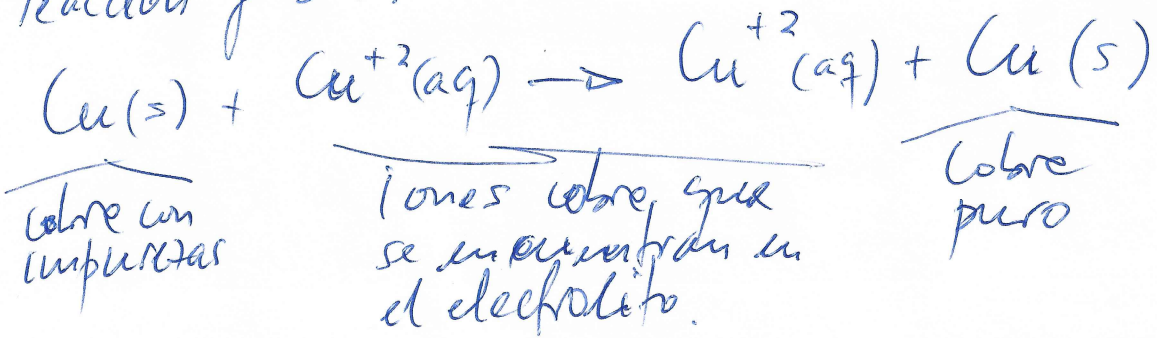 reacción
Cu(s) + Cu⁺²(aq) → Cu⁺²(aq) + Cu(s)
cobre con
impurezas
iones cobre, que
se encuentran en
el electrolito.
cobre
puro